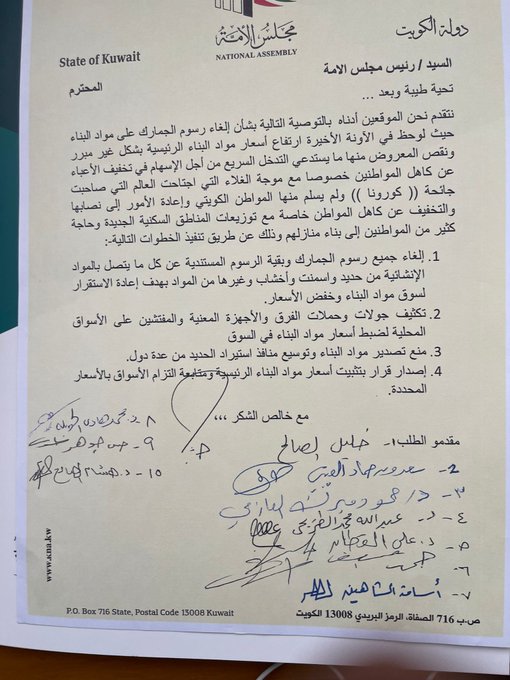 دولة الكويت
مجلس الأمة
NATIONAL ASSEMBLY
State of Kuwait
السيد / رئيس مجلس الامة
المحترم
تحية طيبة وبعد ...
نتقدم نحن الموقعين أدناه بالتوصية التالية بشأن إلغاء رسوم الجمارك على مواد البناء
حيث لوحظ في الآونة الأخيرة ارتفاع أسعار مواد البناء الرئيسية بشكل غير مبرر
ونقص المعروض منها ما يستدعي التدخل السريع من أجل الإسهام في تخفيف الأعباء
عن كاهل المواطنين خصوصا مع موجة الغلاء التي اجتاحت العالم التي صاحبت
جائحة (( كورونا )) ولم يسلم منها المواطن الكويتي وإعادة الأمور إلى نصابها
والتخفيف عن كاهل المواطن خاصة مع توزيعات المناطق السكنية الجديدة وحاجة
كثير من المواطنين إلى بناء منازلهم وذلك عن طريق تنفيذ الخطوات التالية:-
1. إلغاء جميع رسوم الجمارك وبقية الرسوم المستندية عن كل ما يتصل بالمواد
الإنشائية من حديد واسمنت وأخشاب وغيرها من المواد بهدف إعادة الاستقرار
لسوق مواد البناء وخفض الأسعار.
2. تكثيف جولات وحملات الفرق والأجهزة المعنية والمفتشين على الأسواق
المحلية لضبط أسعار مواد البناء في السوق
3. منع تصدير مواد البناء وتوسيع منافذ استيراد الحديد من عدة دول.
4. إصدار قرار بتثبيت أسعار مواد البناء الرئيسية ومتابعة التزام الأسواق بالأسعار
المحددة.
مع خالص الشكر ،،،
مقدمو الطلب ١- خليل الصالح
٢- سعدون حماد
٣- د/ حمود مبرك العازمي
٤- د. عبدالله محمد الطريجي
٥- د. علي القطان
٦-
٧- أسامة الشاهين
٨- د. محمد
٩- حسن جوهر
١٠- د. هشام الصالح
www.kna.kw
P.O. Box 716 State, Postal Code 13008 Kuwait
ص.ب 716 الصفاة، الرمز البريدي 13008 الكويت